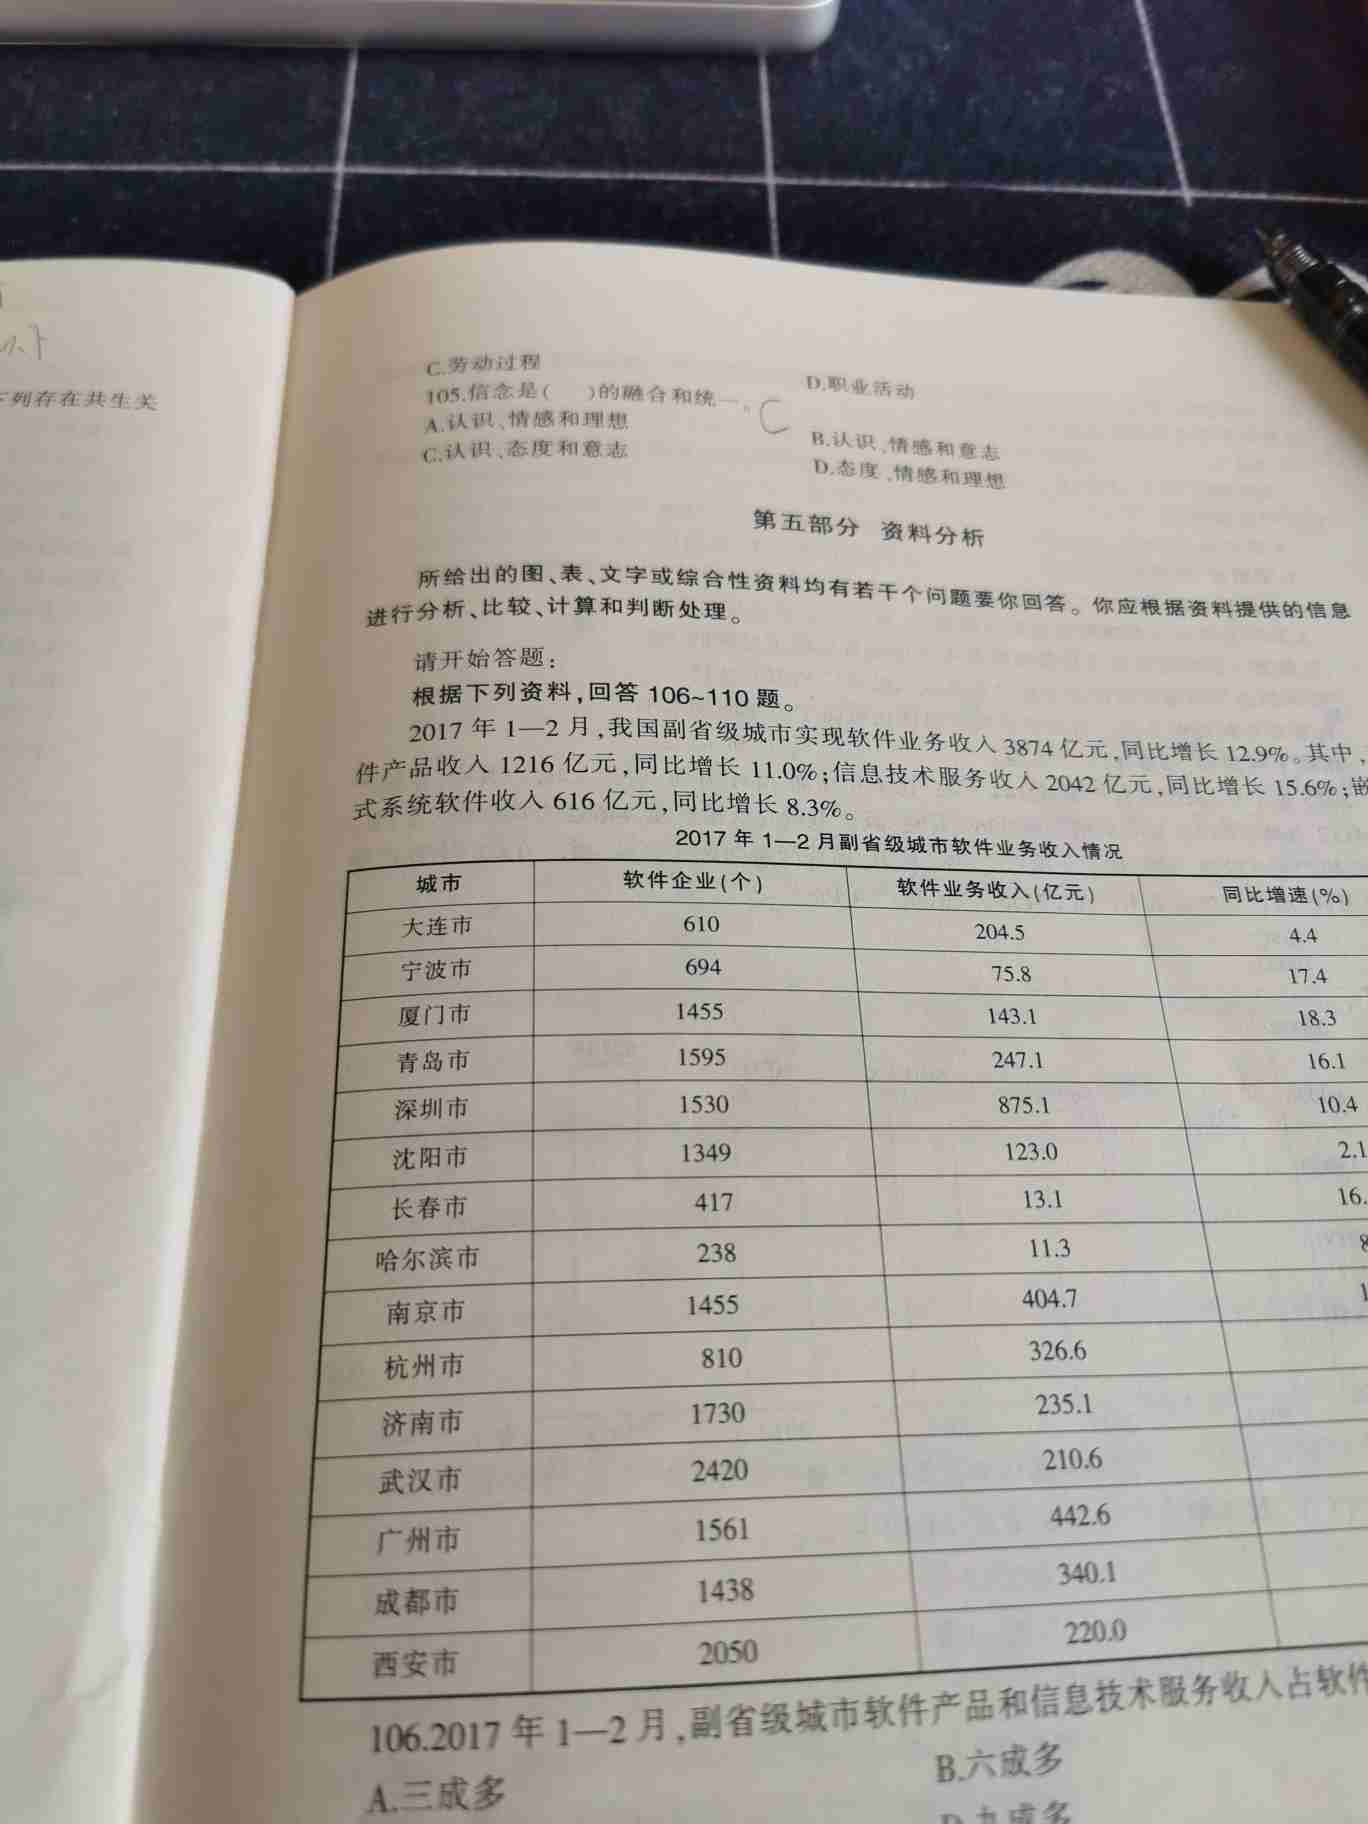 下列存在共生关
C.劳动过程
D.职业活动
105.信念是(    )的融合和统一。C
A.认识、情感和理想
B.认识、情感和意志
C.认识、态度和意志
D.态度、情感和理想
第五部分 资料分析
所给出的图、表、文字或综合性资料均有若干个问题要你回答。你应根据资料提供的信息
进行分析、比较、计算和判断处理。
请开始答题:
根据下列资料,回答 106~110 题。
2017 年 1—2 月,我国副省级城市实现软件业务收入 3874 亿元,同比增长 12.9%。其中,
件产品收入 1216 亿元,同比增长 11.0%;信息技术服务收入 2042 亿元,同比增长 15.6%;嵌
式系统软件收入 616 亿元,同比增长 8.3%。
2017 年 1—2 月副省级城市软件业务收入情况
城市 软件企业(个) 软件业务收入(亿元) 同比增速(%)
大连市 610 204.5 4.4
宁波市 694 75.8 17.4
厦门市 1455 143.1 18.3
青岛市 1595 247.1 16.1
深圳市 1530 875.1 10.4
沈阳市 1349 123.0 2.1
长春市 417 13.1 16.
哈尔滨市 238 11.3 8
南京市 1455 404.7 1
杭州市 810 326.6
济南市 1730 235.1
武汉市 2420 210.6
广州市 1561 442.6
成都市 1438 340.1
西安市 2050 220.0
106.2017 年 1—2 月,副省级城市软件产品和信息技术服务收入占软件
A.三成多
B.六成多
D.九成多